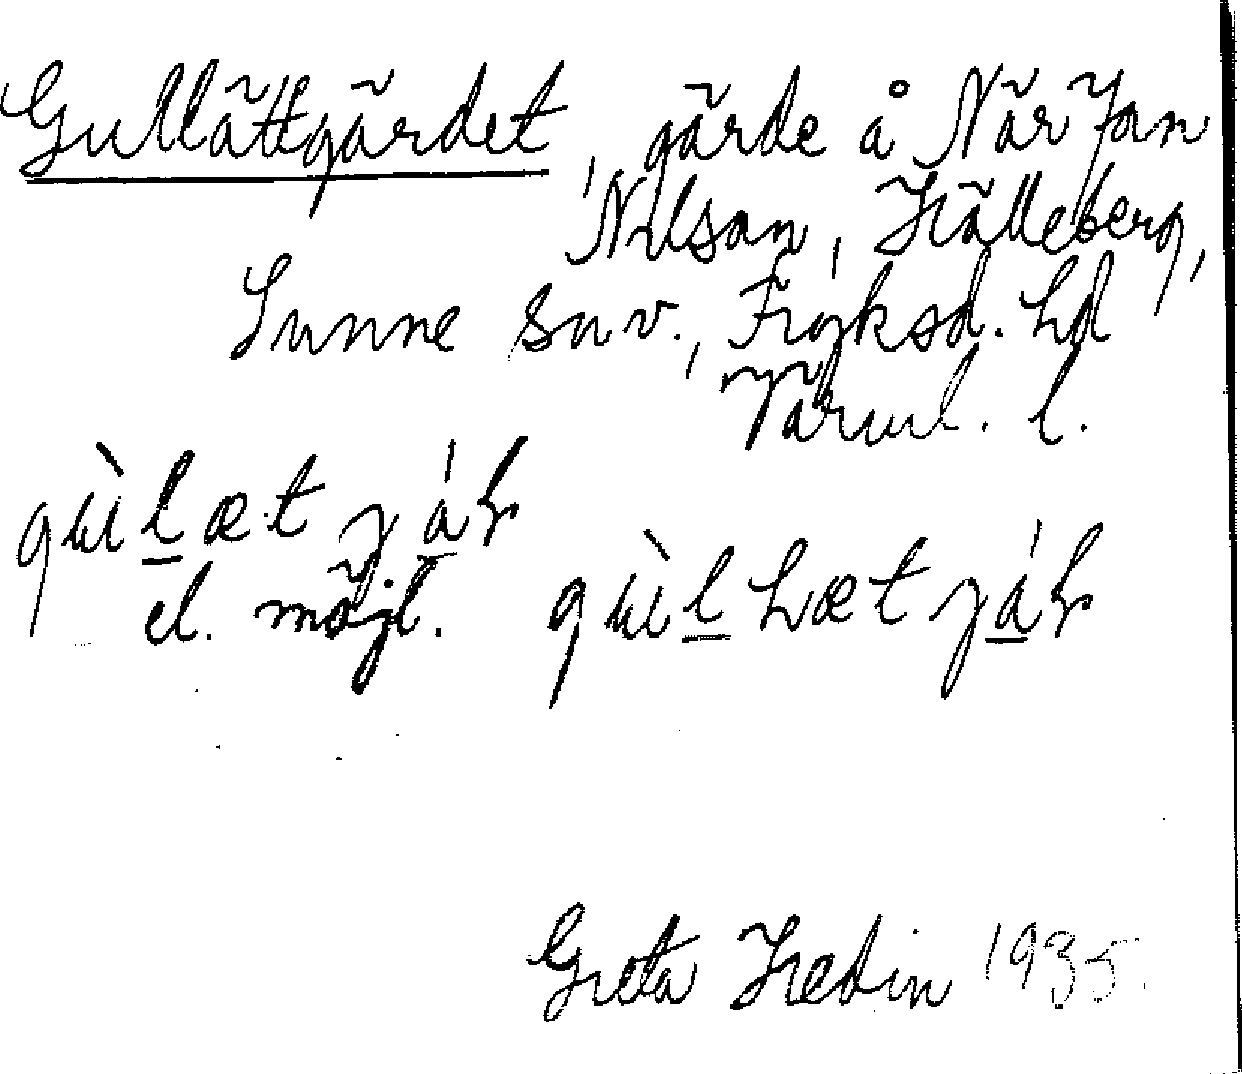 Gullättgärdet, gärde å När Jan
Nilsson, Hälleberg,
Sunne snv., Fryksd. hd
Värml. l.
gùlæt gáɽ
el. möjl. gùlhæt gáɽ
Greta Hedin 1935.